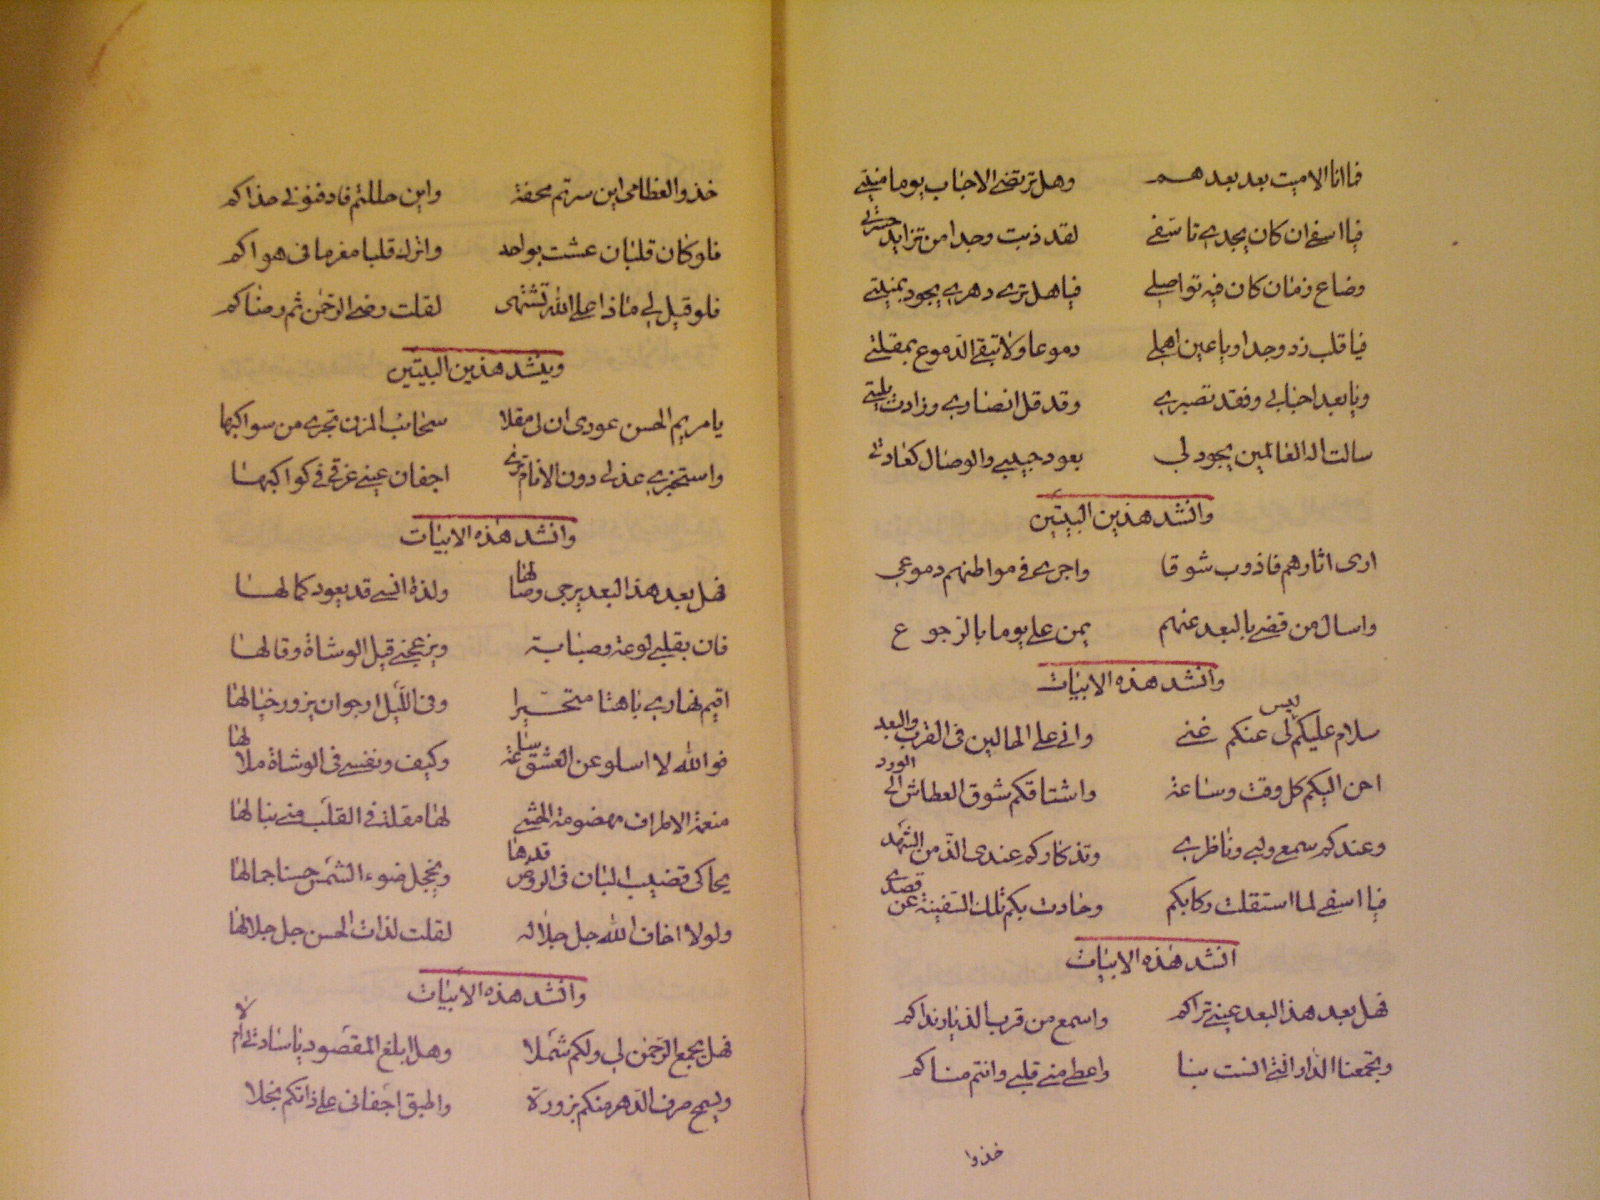 فما انا الا ميت بعد بعدهم وهل ترتضي الاحباب يوما منيتي
فيا اسفي ان كان يجدي تاسفي لقد ذبت وجدا من تزايد حسرتي
وضاع زمان كان فيه تواصلي فيا هل تري دهري يجود بمنيتي
فيا قلب زد وجدا ويا عين اهملي دموعا ولا تبقي الدموع بمقلتي
ويا بعد احبابي وفقد تصبري وقد قل انصاري وزادت بليتي
سالت اله العالمين يجود لي بعود حبيبي والوصال كعادتي
وانشد هذين البيتين
ارى اثارهم فاذوب شوقا واجري في مواطنهم دموعي
واسال من قضي بالبعد عنهم يمن علي يوما بالرجوع
وانشد هذه الابيات
سلام عليكم ليس لي عنكم غني واني علي الحالين في القرب والبعد
احن اليكم كل وقت وساعة واشتاقكم شوق العطاش الي الورد
وعندكم سمعي ولبي وناظري وتذكاركم عندي الذ من الشهد
فيا اسفي لما استقلت ركابكم وحادت بكم تلك السفينة عن قصدي
انشد هذه الابيات
فهل بعد هذا البعد عيني تراكم واسمع من قرب الديار نداكم
وتجمعنا الدار التي انست بنا واعطي مني قلبي وانتم مناكم
خذوا
خذوا لعظامي اين سرتم محفة واين حللتم فادفنوني حذاكم
فلو كان قلبان عشت بواحد واترك قلبا مغرما في هواكم
فلو قيل لي ماذا علي الله تشتهى لقلت رضي الرحمن ثم رضاكم
وينشد هذين البيتين
يا مريم الحسن عودى ان لي مقلا سحائب المزن تجري من سواكبها
واستخبري عذلي دون الانام تري اجفان عيني غرقي في كواكبها
وانشد هذه الابيات
فهل بعد هذا البعد يرجى وصالها ولذة انسي قد يعود كمالها
فان بقلبي لوعة وصبابة ويزعجني قيل الوشاة وقالها
اقيم نهاري باهتا متحيرا وفي الليل ارجو ان يزور خيالها
فوالله لا اسلو عن العشق ساعة وكيف ونفسي في الوشاة ملالها
منعمة الاطراف مهضومة الحشي لها مقلة في القلب مني نبالها
يحاكى قضيب البان في الروض قدها ويخجل ضوء الشمس حسنا جمالها
ولولا اخاف الله جل جلاله لقلت لذات الحسن جل جلالها
وانشد هذه الابيات
فهل يجمع الرحمن لي ولكم شملا وهل ابلغ المقصود يا سادتي ام لا
ويسمح صرف الدهر منكم بزورة واطبق اجفاني علي ذاتكم بخلا